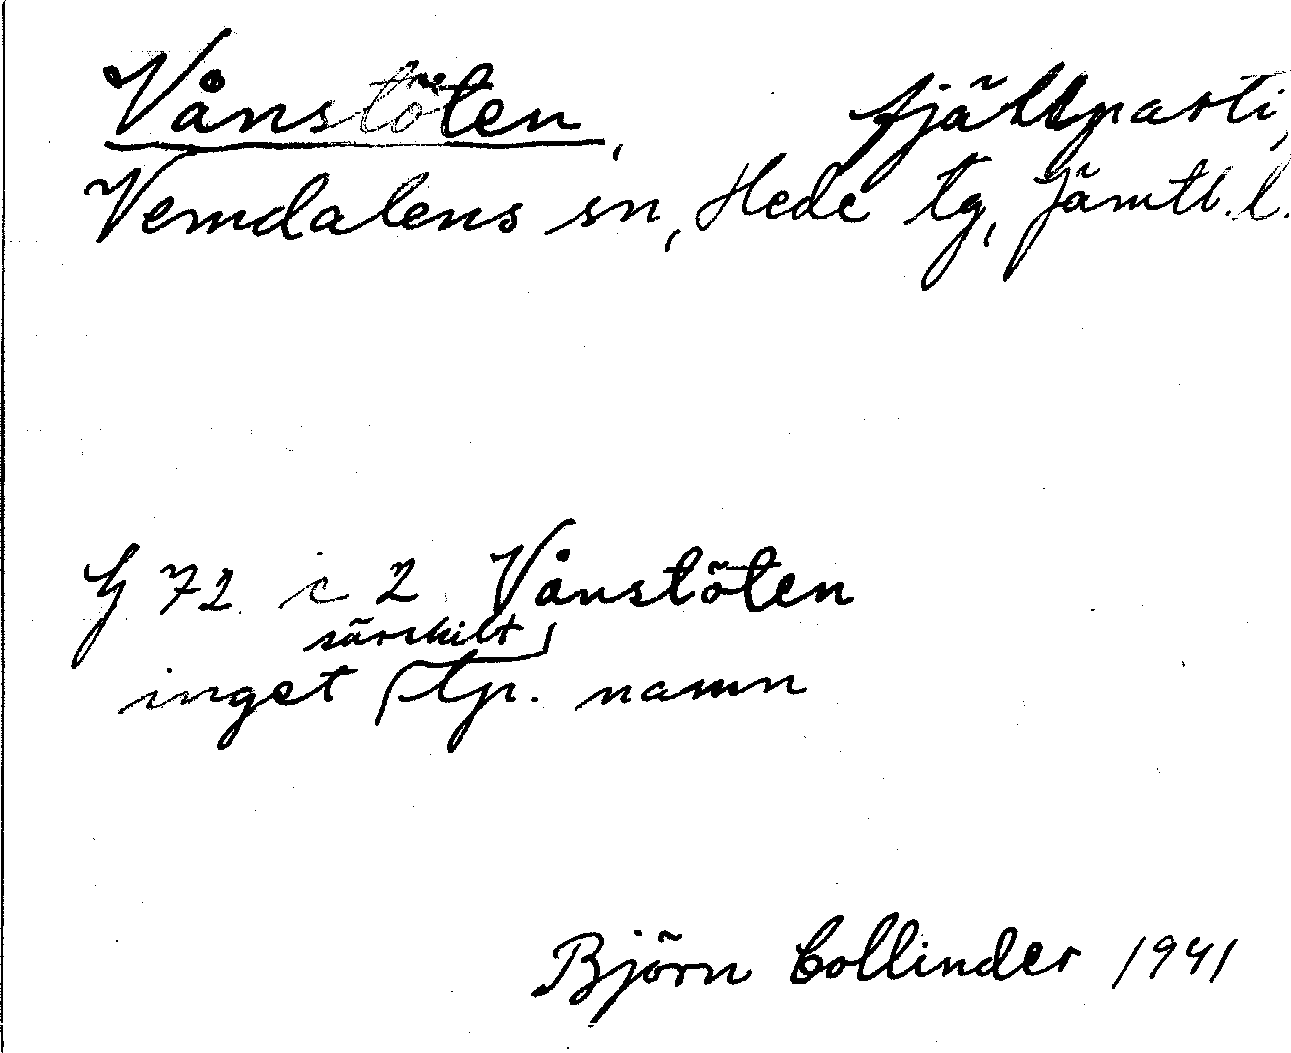 Vånstöten, fjällparti,
Vemdalens sn, Hede tg, Jämtl. l.
G 72 c 2 Vånstöten
särskilt
inget lp. namn
Björn Collinder 1941